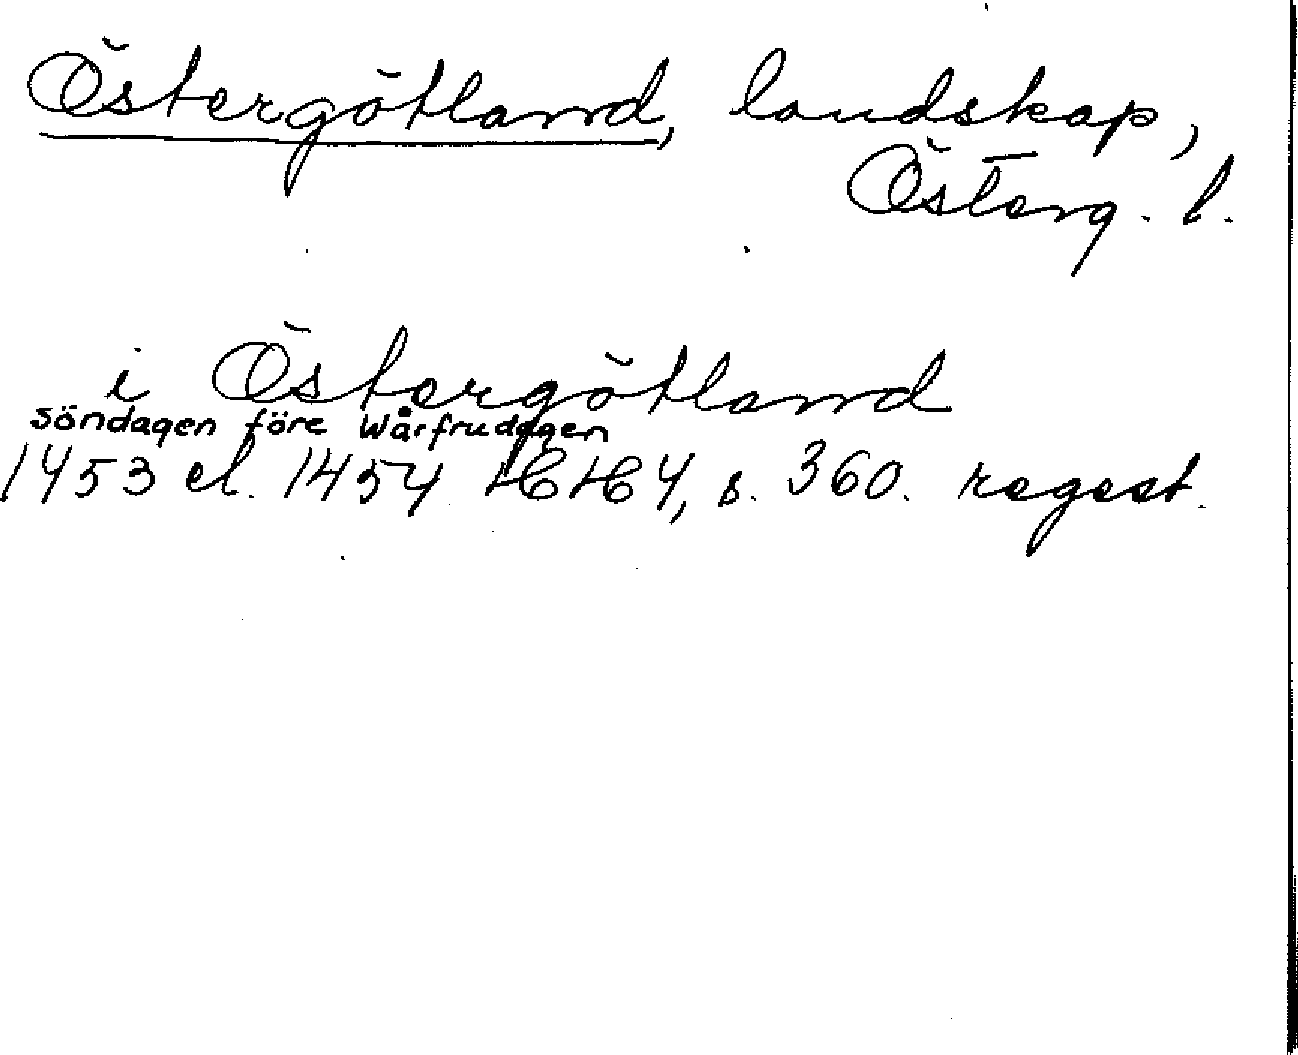 Östergötland, landskap,
Österg. l.
i Östergötland
söndagen före Wårfrudagen
1453 el. 1454 HH 4, s. 360. regest.